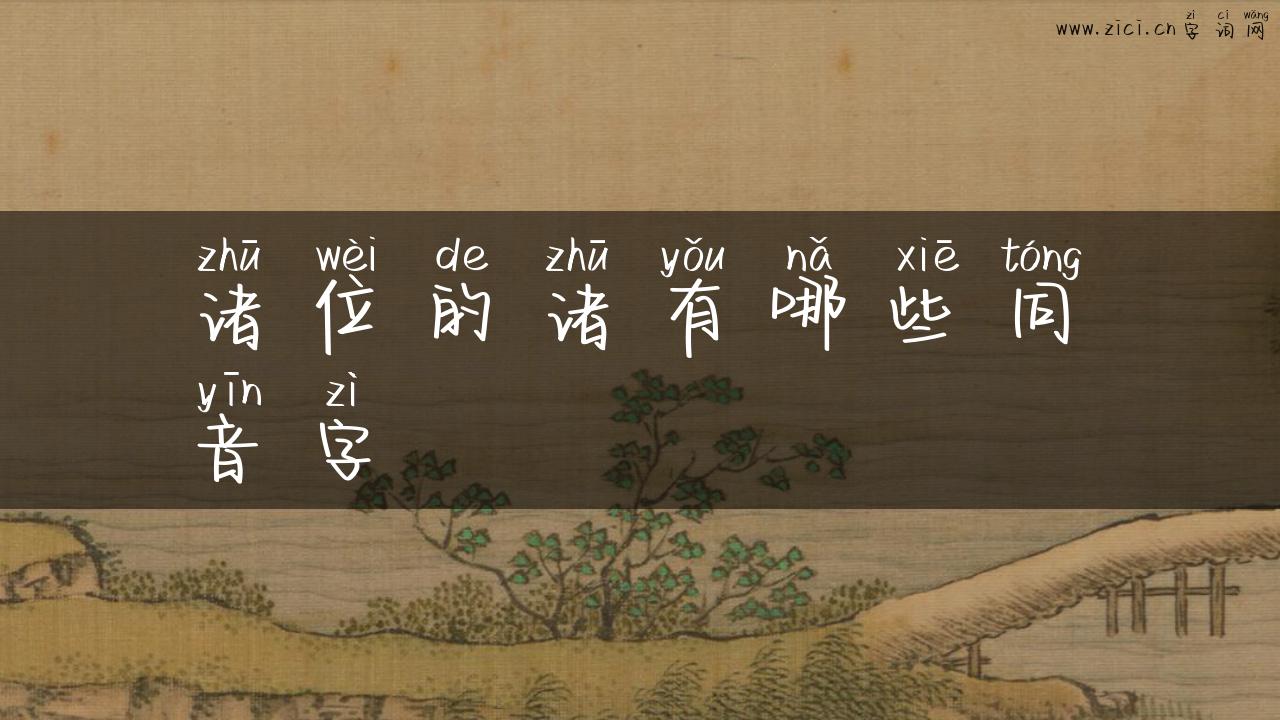 zì cí wǎng
www.zici.cn 字词网
zhū wèi de zhū yǒu nǎ xiē tóng
诸位的诸有哪些同
yīn zì
音字